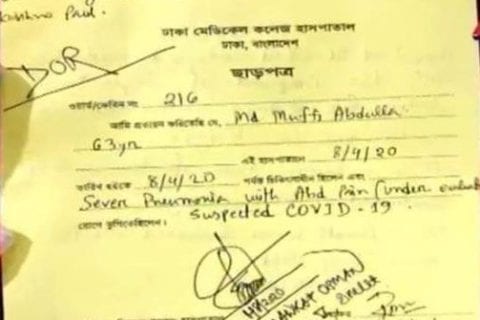 Paul.
ঢাকা মেডিকেল কলেজ হাসপাতাল
ঢাকা, বাংলাদেশ
DOR
ছাড়পত্র
ওয়ার্ড/কেবিন নং 216
আমি প্রত্যয়ন করিতেছি যে, Md Muffi Abdulla
63yr
এই হাসপাতালে 8/4/20
তারিখ হইতে 8/4/20 পর্যন্ত চিকিৎসাধীন ছিলেন এবং
Sever Pneumonia with Abd Pain (under
suspected COVID-19
রোগে ভুগিতেছিলেন।
OSMAN